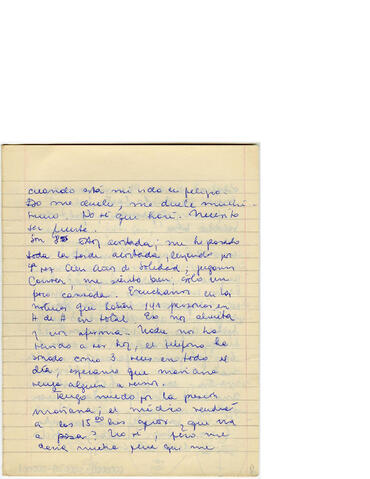 cuando está mi vida en peligro.
Eso me duele, me duele muchí-
simo. No sé qué haré. Necesito
ser fuerte.
Son 8 Estoy acostada; me he pasado
toda la tarde acostada, leyendo por
1ª vez Cien Años de Soledad; jugamos
me siento bien, sólo un
poco cansada. Escuchamos en las
noticias que habían 141 personas en
H de A en total. Eso nos alienta
y nos Nadie nos ha
venido a ver hoy, el teléfono ha
sonado como 3 veces en todo el
día, esperamos que mañana
venga alguien a vernos.
Tengo miedo por la
mañana; el médico vendrá
a las 15 ¿qué va
a pasar? No sé, pero me
daría mucha pena que me